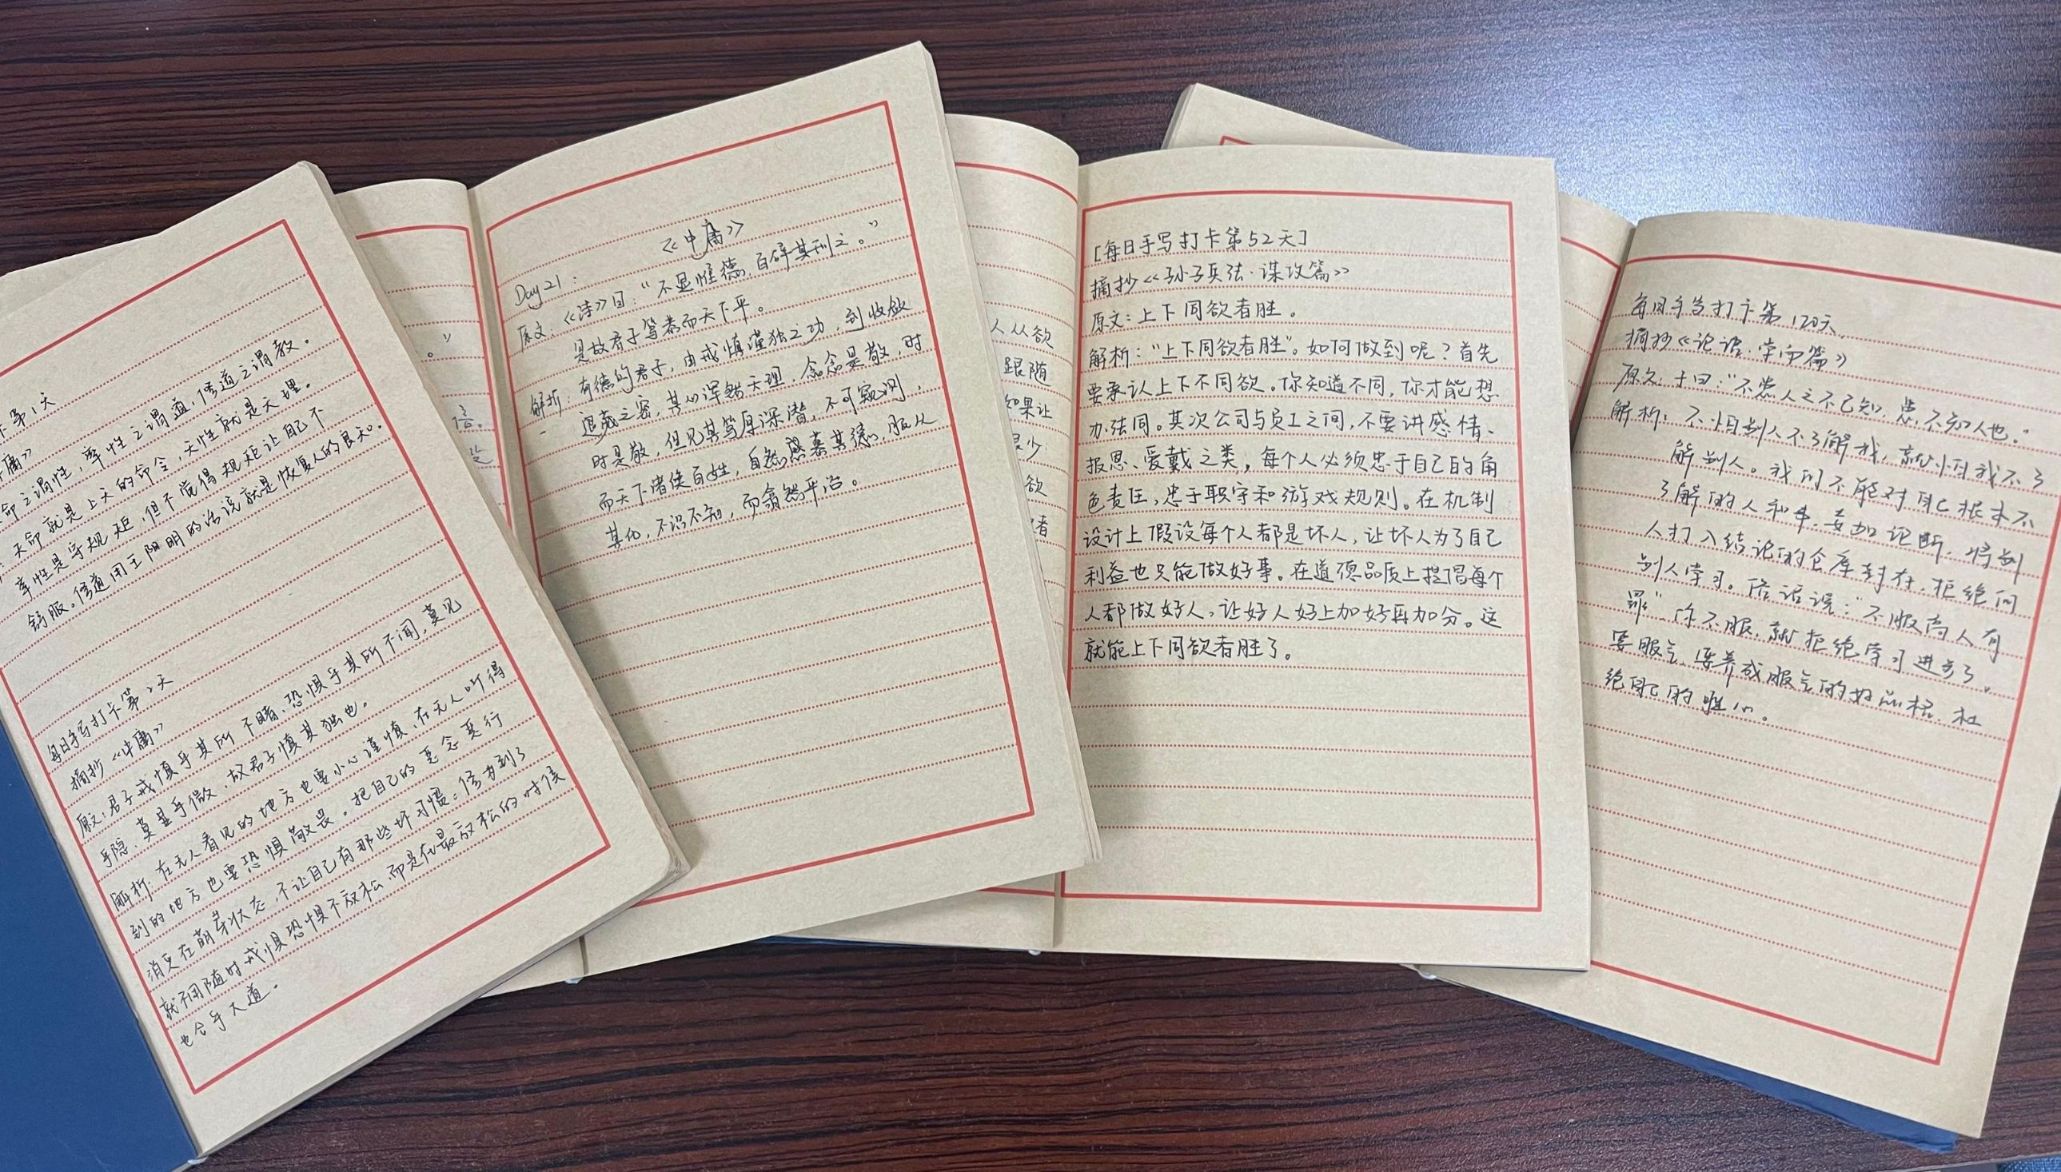 卡第1天
庸》
命之谓性，率性之谓道，修道之谓教。
天命就是上天的命令，天性就是天理。
率性是守规矩，但不觉得规矩让自己不
舒服。修道用王阳明的话说就是恢复人的良知。
每日手写打卡第2天
摘抄《中庸》
原文：君子戒慎乎其所不睹，恐惧乎其所不闻，莫见
乎隐，莫显乎微，故君子慎其独也。
解析：在无人看见的地方也要小心谨慎，在无人听得
到的地方也要恐惧敬畏。把自己的恶念恶行
消灭在萌芽状态，不让自己有那些坏习惯。修为到了
就不用随时戒慎恐惧不放松，而是在最放松的时候
也合乎天道。
。”
信。
Day21：《中庸》
原文：《诗》曰：“不显惟德，百辟其刑之。”
是故君子笃恭而天下平。
解析：有德的君子，由戒慎谨独之功，到收敛
退藏之密，其心浑然天理，念念是敬，时
时是敬，但见其笃厚深潜，不可窥测，
而天下诸侯百姓，自然感慕其德，服从
其化，不识不知，而翕然平治。
人从欲
跟随
如果让
很少
欲
者
[每日手写打卡第52天]
摘抄《孙子兵法·谋攻篇》
原文：上下同欲者胜。
解析：“上下同欲者胜”。如何做到呢？首先
要承认上下不同欲。你知道不同，你才能想
办法同。其次公司与员工之间，不要讲感情、
报恩、爱戴之类，每个人必须忠于自己的角
色责任，忠于职守和游戏规则。在机制
设计上假设每个人都是坏人，让坏人为了自己
利益也只能做好事。在道德品质上提倡每个
人都做好人，让好人好上加好再加分。这
就能上下同欲者胜了。
每日手写打卡第120天
摘抄《论语·学而篇》
原文：子曰：“不患人之不己知，患不知人也。”
解析：不怕别人不了解我，就怕我不了
解别人。我们不能对自己根本不
了解的人和事，妄加论断，将别
人打入结论的仓库封存，拒绝向
别人学习。俗话说：“不服高人有
罪”你不服，就拒绝学习进步了。
要服气，培养成服气的好品格，杜
绝自己的胜心。